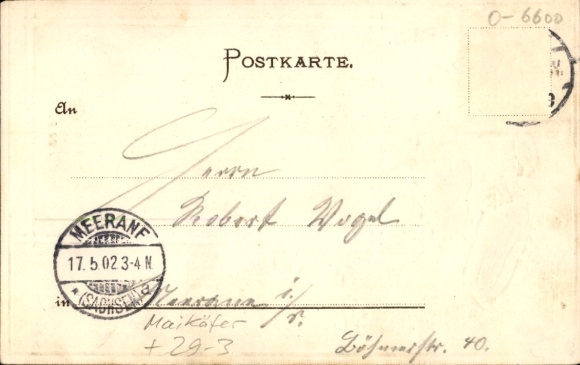 0-6600
POSTKARTE.
An
Herrn
Robert Vogel
MEERANE
17.5.02.3-4 N.
* (SACHSEN) a
in Meerane i/
Maikäfer
+29-3
Böhmerstr. 40.